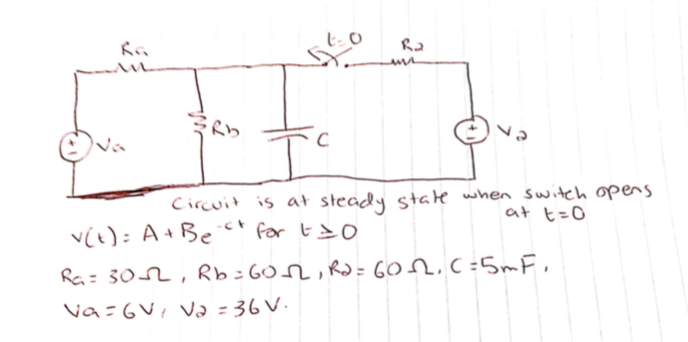 t=0
Ra
R2
Rb
C
Va
V2
Circuit is at steady state when switch opens
at t=0
v(t) = A + Be^-ct for t ≥ 0
Ra = 30Ω, Rb = 60Ω, R2 = 60Ω, C = 5mF,
Va = 6V, V2 = 36V.